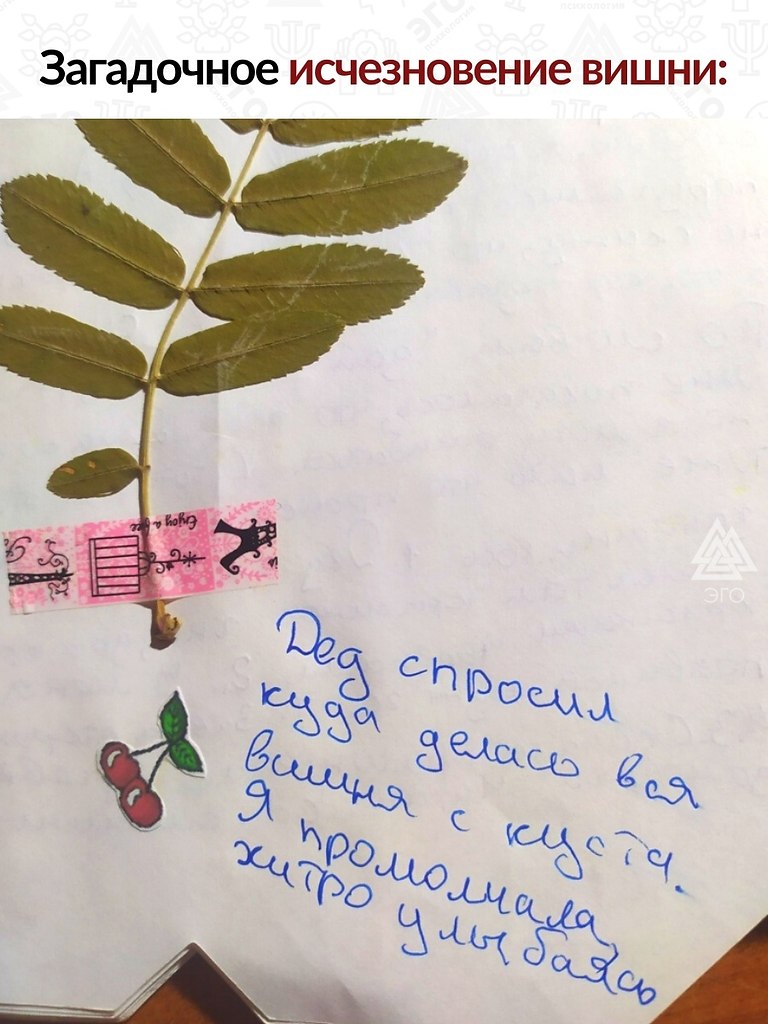 Загадочное исчезновение вишни:
Enjoy a free
ЭГО
Дед спросил
куда делась вся
вишня с куста.
Я промолчала,
хитро улыбаясь